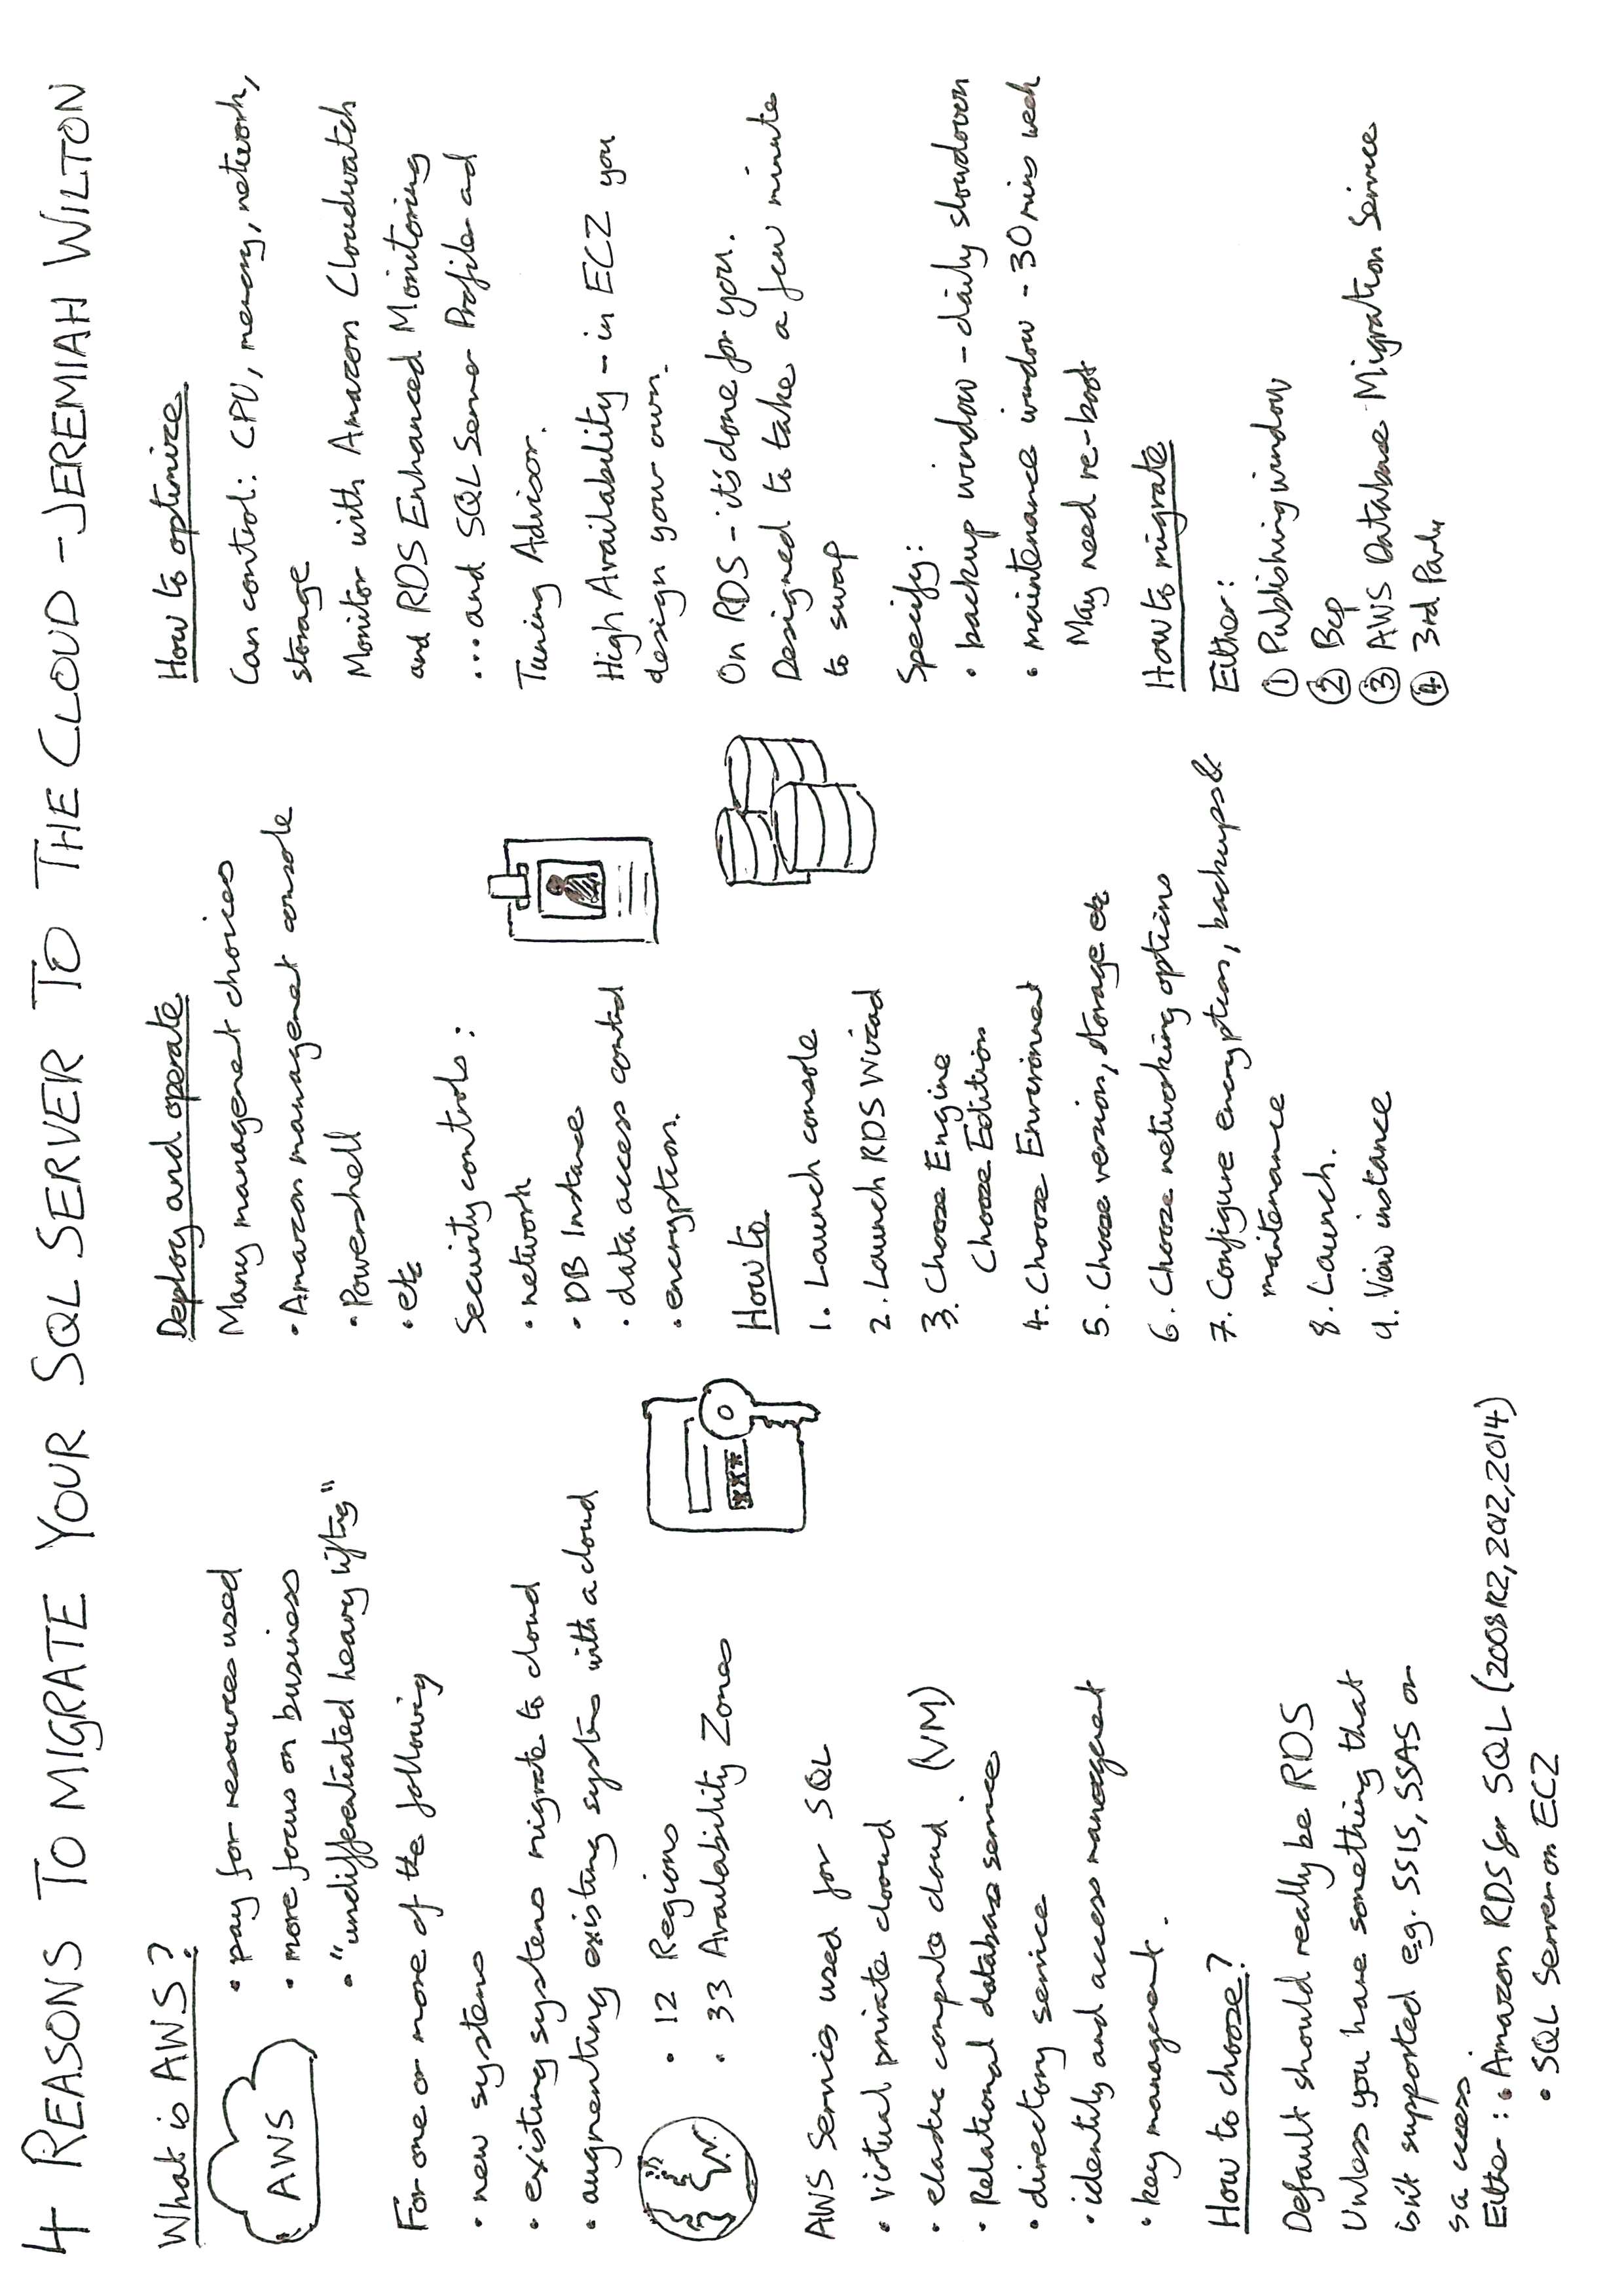 4 REASONS TO MIGRATE YOUR SQL SERVER TO THE CLOUD - JEREMIAH WILTON
What is AWS?
AWS
• pay for resources used
• more focus on business
• "undifferentiated heavy lifting"
For one or more of the following
• new systems
• existing systems migrate to cloud
• augmenting existing systems with a cloud
• 12 Regions
• 33 Availability Zones
AWS Services used for SQL
• virtual private cloud
• elastic compute cloud (VM)
• Relational database service
• directory service
• identity and access management
• key management.
How to choose?
Default should really be RDS
Unless you have something that
isn't supported e.g. SSIS, SSAS or
sa access
Either: • Amazon RDS for SQL (2008R2, 2012, 2014)
• SQL Server on EC2
Deploy and operate
Many management choices
• Amazon management console
• Powershell
• etc
Security controls:
• network
• DB Instance
• data access control
• encryption.
How to
1. Launch console
2. Launch RDS Wizard
3. Choose Engine
Choose Edition
4. Choose Environment
5. Choose version, storage etc
6. Choose networking options
7. Configure encryption, backups &
maintenance
8. Launch.
9. View instance
How to optimize
Can control: CPU, memory, network,
storage
Monitor with Amazon Cloudwatch
and RDS Enhanced Monitoring
... and SQL Server Profiler ad
Tuning Advisor.
High Availability - in EC2 you
design your own.
On RDS - it's done for you.
Designed to take a few minute
to swap
Specify:
• backup window - daily slowdown
• maintenance window - 30 mins week
May need re-boot
How to migrate
Either:
① Publishing window
② Bcp
③ AWS Database Migration Service
④ 3rd Party